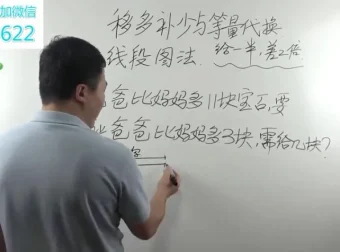 加微信
622
移多补少与等量代换
线段图法. 给一半,差2倍
爸比妈妈多11块宝石,要
爸爸比妈妈多3块,需给几块?